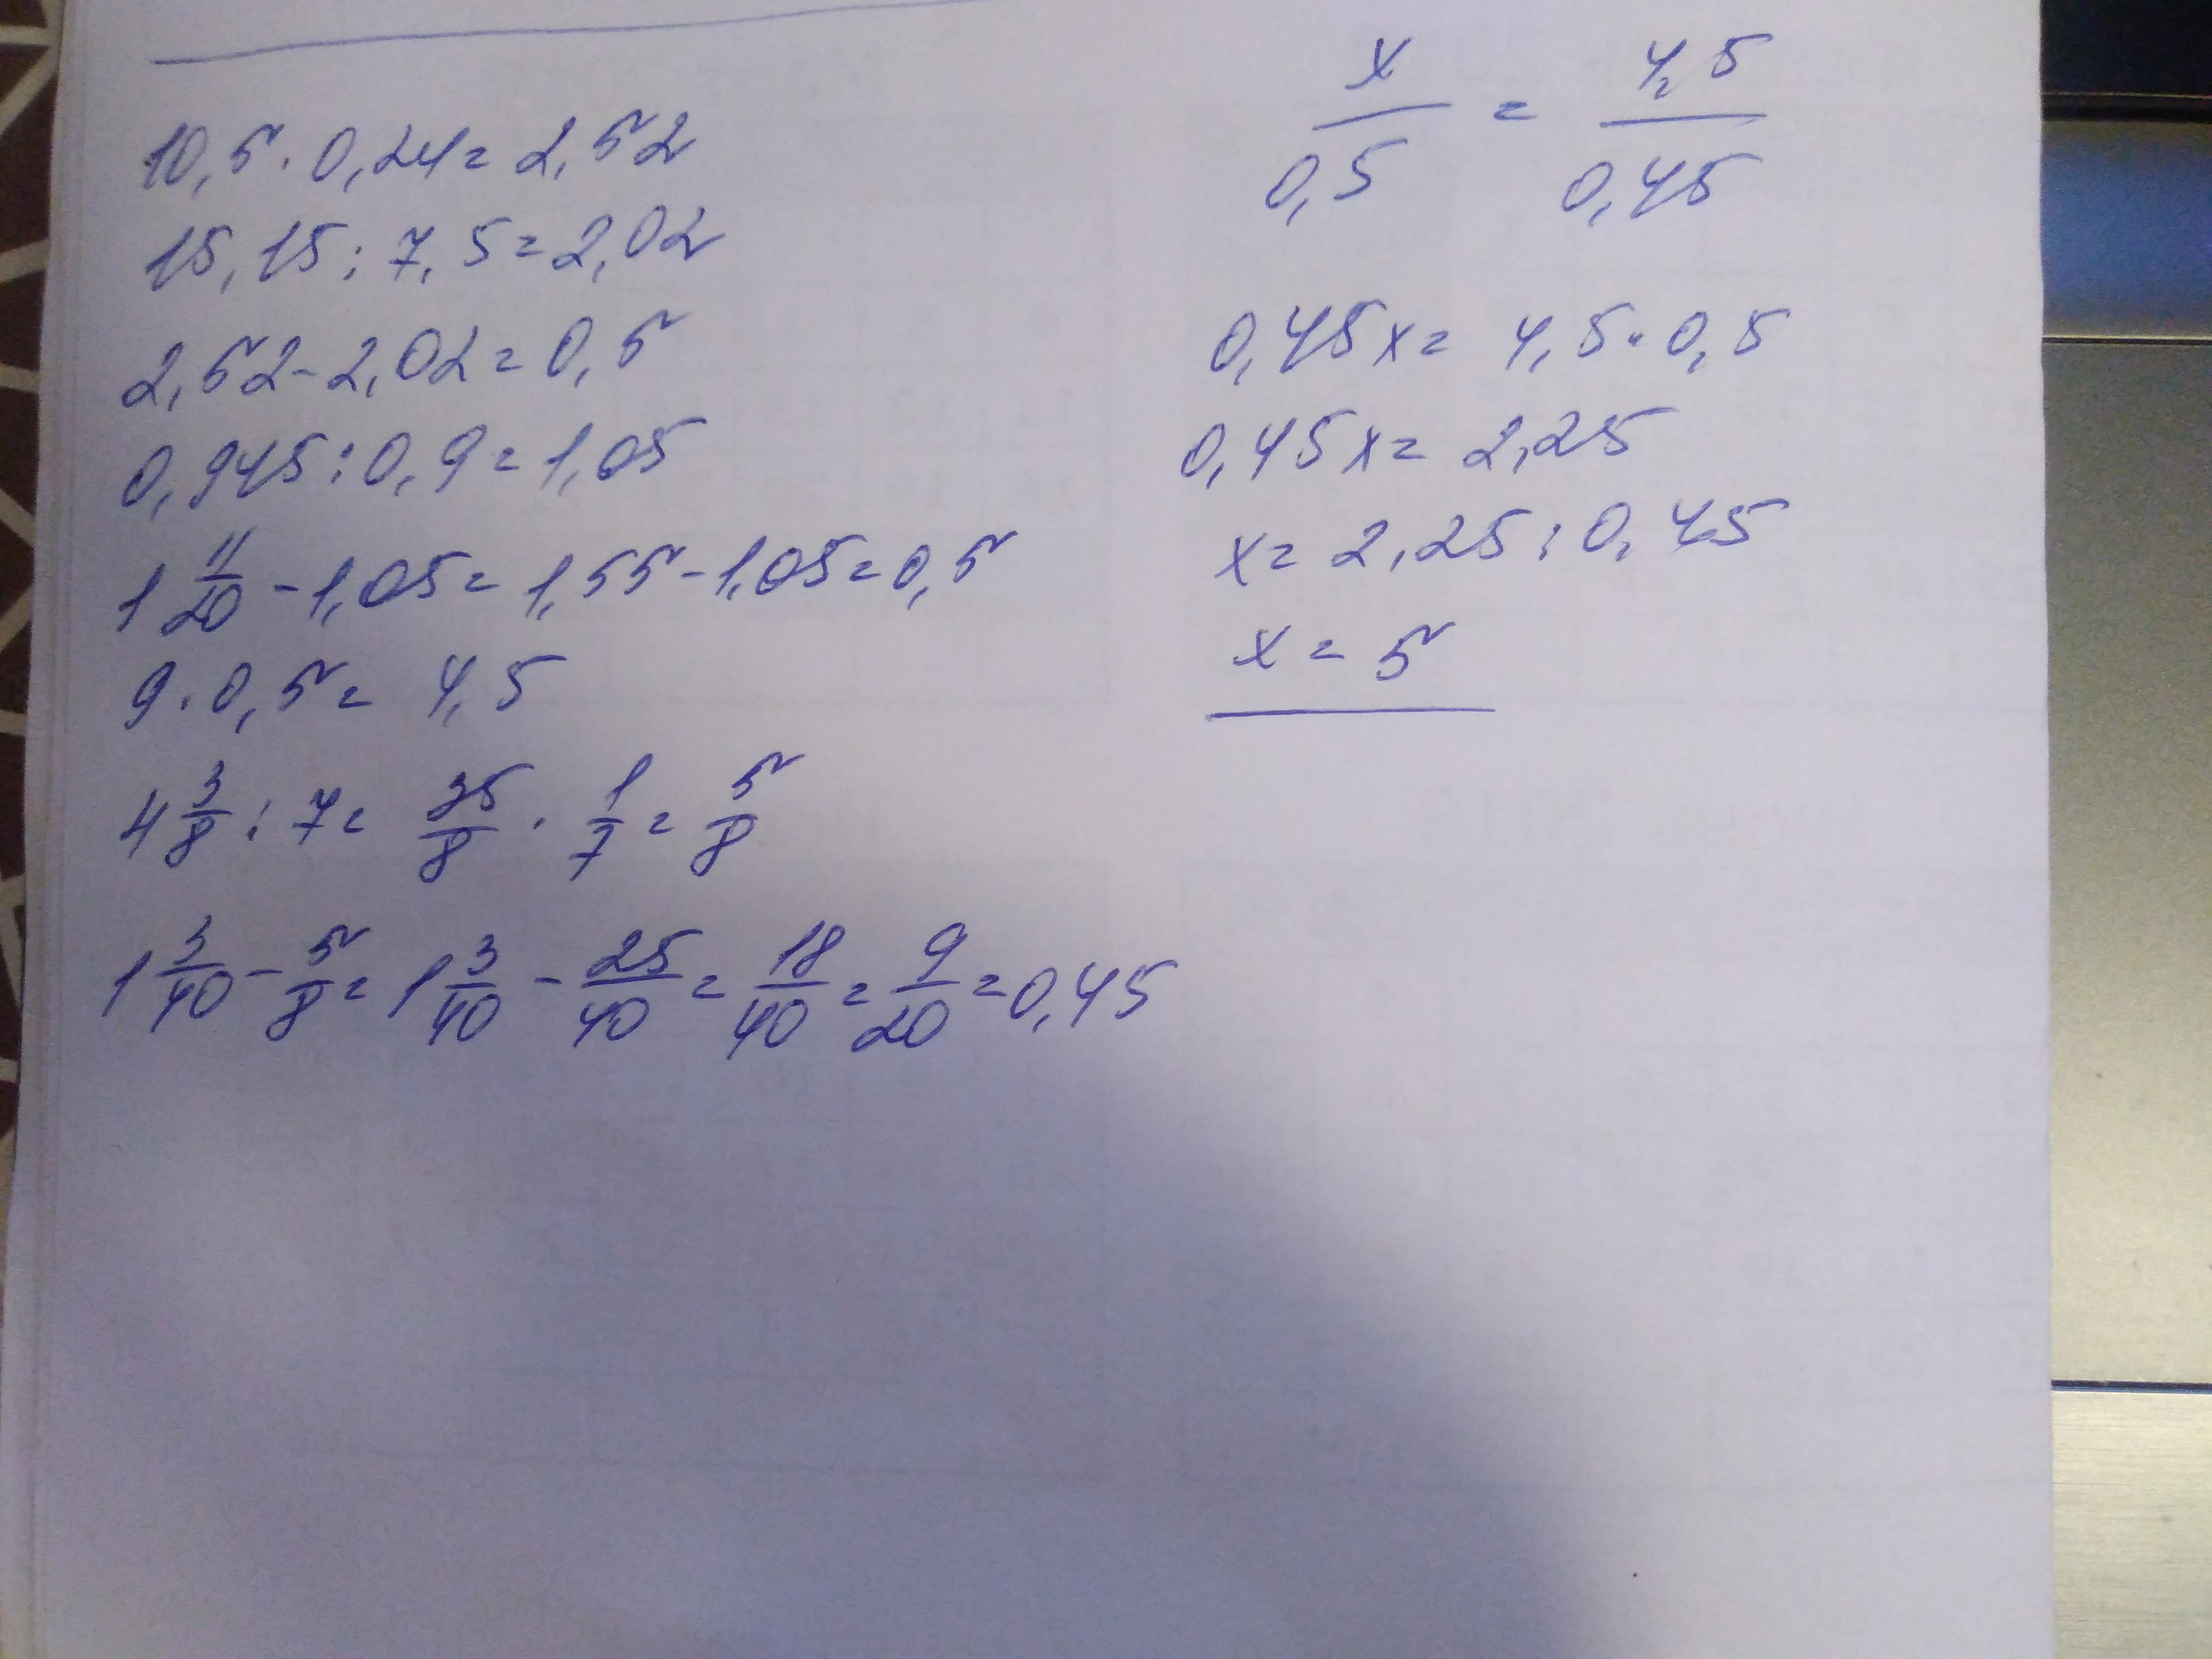 10,5 · 0,24 = 2,52
15,15 : 7,5 = 2,02
2,52 - 2,02 = 0,5
0,945 : 0,9 = 1,05
1 11/20 - 1,05 = 1,55 - 1,05 = 0,5
9 · 0,5 = 4,5
4 3/8 : 7 = 35/8 · 1/7 = 5/8
1 3/40 - 5/8 = 1 3/40 - 25/40 = 18/40 = 9/20 = 0,45
x/0,5 = 4,5/0,45
0,45x = 4,5 · 0,5
0,45x = 2,25
x = 2,25 : 0,45
x = 5